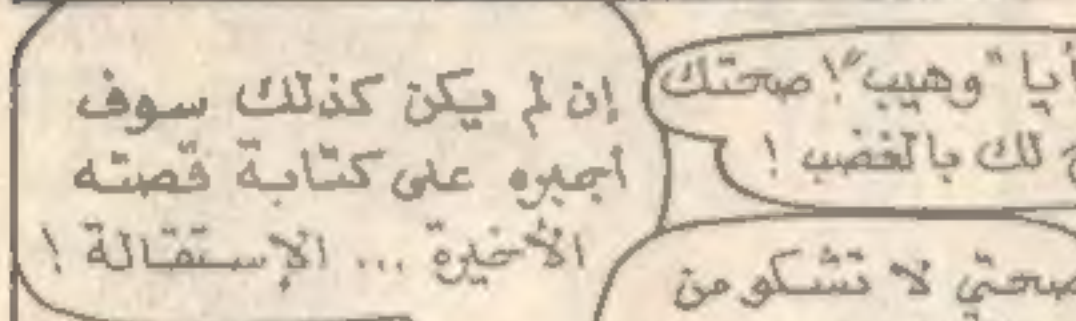 أيا "وهيب"! صحتك
لك بالغضب !
صحتي لا تشكو من
إن لم يكن كذلك سوف
اجبره على كتابة قصته
الأخيرة ... الإستقالة !